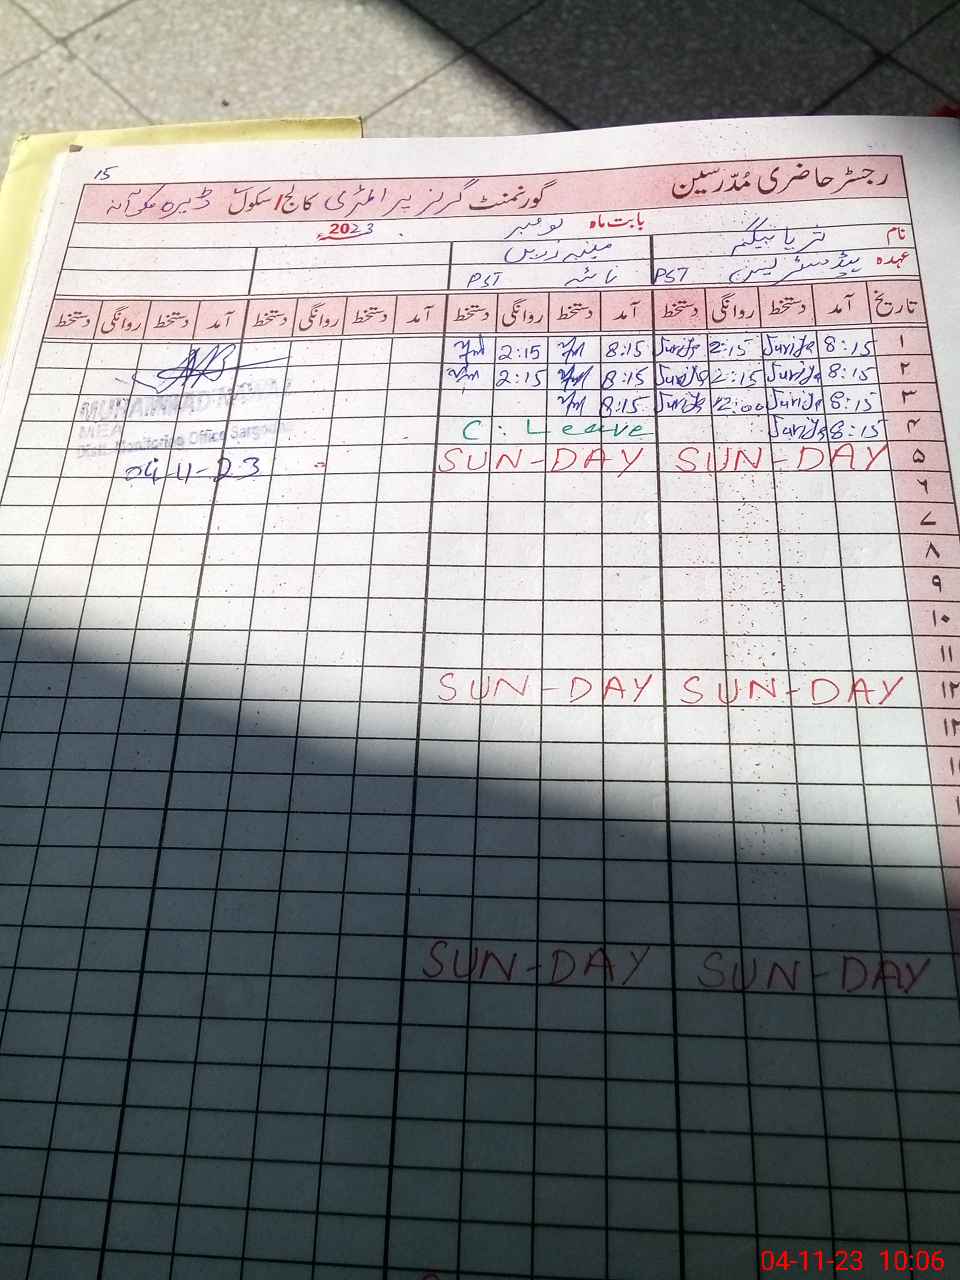 15
رجسٹر حاضری مُدّرسین
گورنمنٹ گرلز پرائمری کالج/سکول ڈیرہ
بابت ماہ نومبر 2023
نام ثریا بیگم
عہدہ ہیڈمسٹریس PST PST
تاریخ آمد دستخط روانگی دستخط آمد دستخط روانگی دستخط آمد دستخط روانگی دستخط آمد دستخط روانگی دستخط
۱ 8:15 Surija 2:15 Surija 8:15 2:15
۲ 8:15 Surija 2:15 Surija 8:15 2:15
۳ 8:15 Surija 12:00 Surija 8:15
۴ 8:15 Surija C. Leave
۵ SUN-DAY SUN-DAY
۶
۷
۸
۹
۱۰
۱۱
۱۲ SUN-DAY SUN-DAY
۱۳
SUN-DAY SUN-DAY
MUHAMMAD
MEA
Distt. Monitoring Office Sargodha
04-11-23
04-11-23 10:06